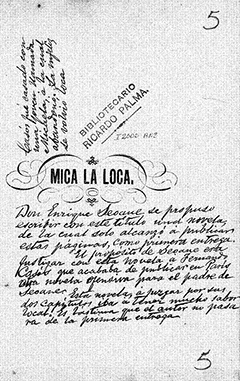 5
Casós fue casado con
una joven llamada
Micaela, a la cual
abandonó. La infeliz
se volvió loca
BIBLIOTECARIO
RICARDO PALMA.
MICA LA LOCA.
Don Enrique Seoane, se propuso
escribir con este título una novela
de la cual solo alcanzó a publicar
estas páginas, como primera entrega.
El propósito de Seoane era
fustigar con esta novela a Fernando
Casós que acababa de publicar en París
una novela ofensiva para el padre de
Seoane. Esta novela, á juzgar por sus
dos capítulos iba a tener mucho sabor
local. Es lástima que el autor no pasa-
ra de la primera entrega
5